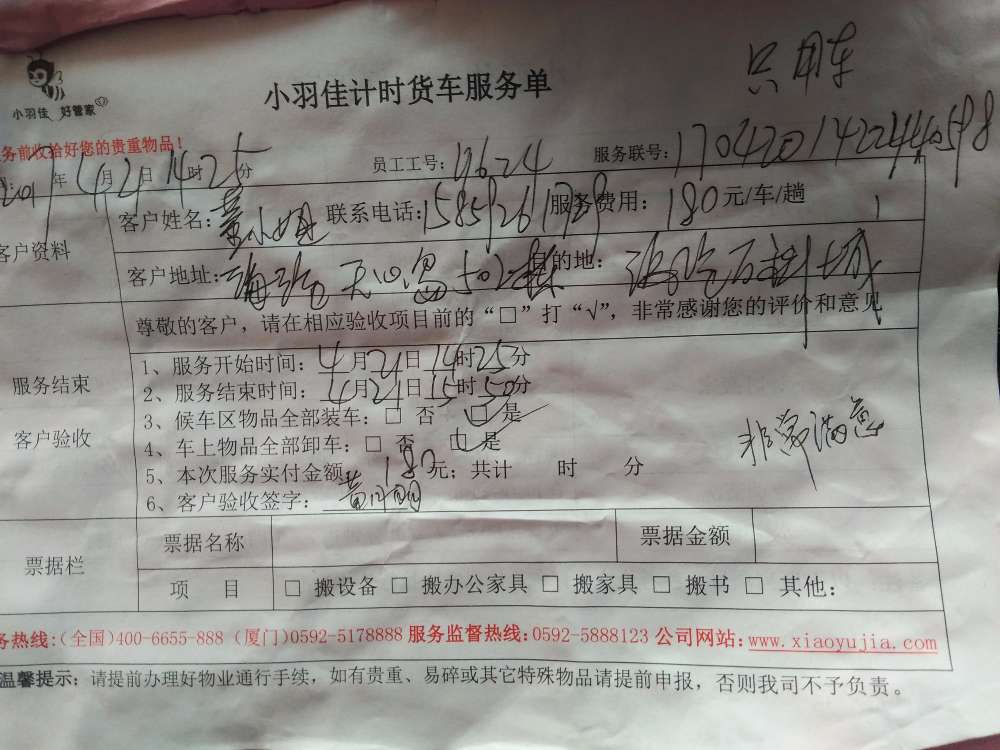 只用车
小羽佳 好管家
小羽佳计时货车服务单
务前收拾好您的贵重物品!
年4月21日14时25分 员工工号: 17624 服务联号: 170420142244
客户姓名: 小姐 联系电话: 服务费用: 180元/车/趟
客户资料
客户地址: 目的地:
尊敬的客户，请在相应验收项目前的“□”打“√”，非常感谢您的评价和意见
服务结束
客户验收
1、服务开始时间: 4月21日14时25分
2、服务结束时间: 4月21日15时50分
3、候车区物品全部装车: □ 否 □ 是
4、车上物品全部卸车: □ 否 □ 是
5、本次服务实付金额 180元; 共计 时 分
6、客户验收签字:
非常满意
票据栏
票据名称 票据金额
项 目 □ 搬设备 □ 搬办公家具 □ 搬家具 □ 搬书 □ 其他:
务热线:(全国)400-6655-888 (厦门)0592-5178888 服务监督热线:0592-5888123 公司网站:www.xiaoyujia.com
温馨提示: 请提前办理好物业通行手续，如有贵重、易碎或其它特殊物品请提前申报，否则我司不予负责。